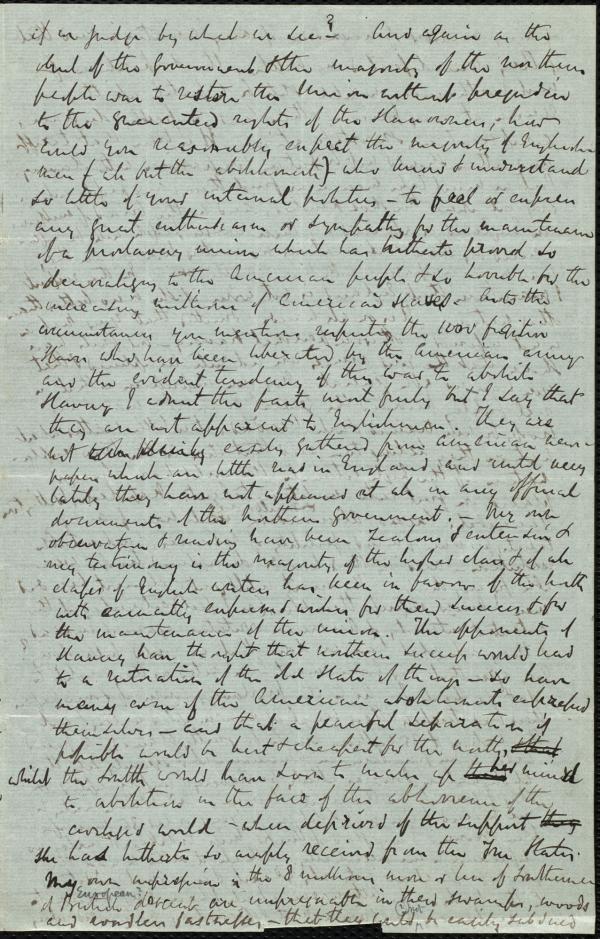 3
if we judge by what we see — And again as the
deal of the Government & the majority of the northern
people was to restore the Union without prejudice
to the guaranteed rights of the Slaveowners, how
could you reasonably expect the majority of English-
men (all but the abolitionists) who know & understand
so little of your internal politics — to feel or express
any great enthusiasm or sympathy for the maintenance
of a proslavery union which has hitherto proved so
demoralizing to the American people & so horrible for the
increasing millions of American Slaves. As to the
circumstances you mention respecting the 1000 fugitive
Slaves who have been liberated by the American army
and the evident tendency of this war to abolish
Slavery I admit the facts most fully but I say that
they are not apparent to Englishmen. They are
not easily gathered from American news-
papers which are little read in England, and until very
lately they have not appeared at all in any official
documents of the Northern Government. — My own
observation & reading have been zealous & extensive &
my testimony is the majority of the higher class & of all
classes of English writers has been in favour of the North
with earnestly expressed wishes for their success & for
the maintenance of the union. The opponents of
Slavery have thought that northern success would lead
to a restoration of the old State of things — so have
many even of the American abolitionists expressed
themselves — and that a peaceful separation if
possible would be best & cheapest for the north, that
whilst the South would have soon to make up her mind
to abolition in the face of the abhorrence of the
civilized world — when deprived of the support they
she has hitherto so amply received from the Free States.
My own impression is the 8 millions more or less of Southerners
European?
of British descent are impregnable in their swamps, woods
and roadless fastnesses — that they could be easily subdued